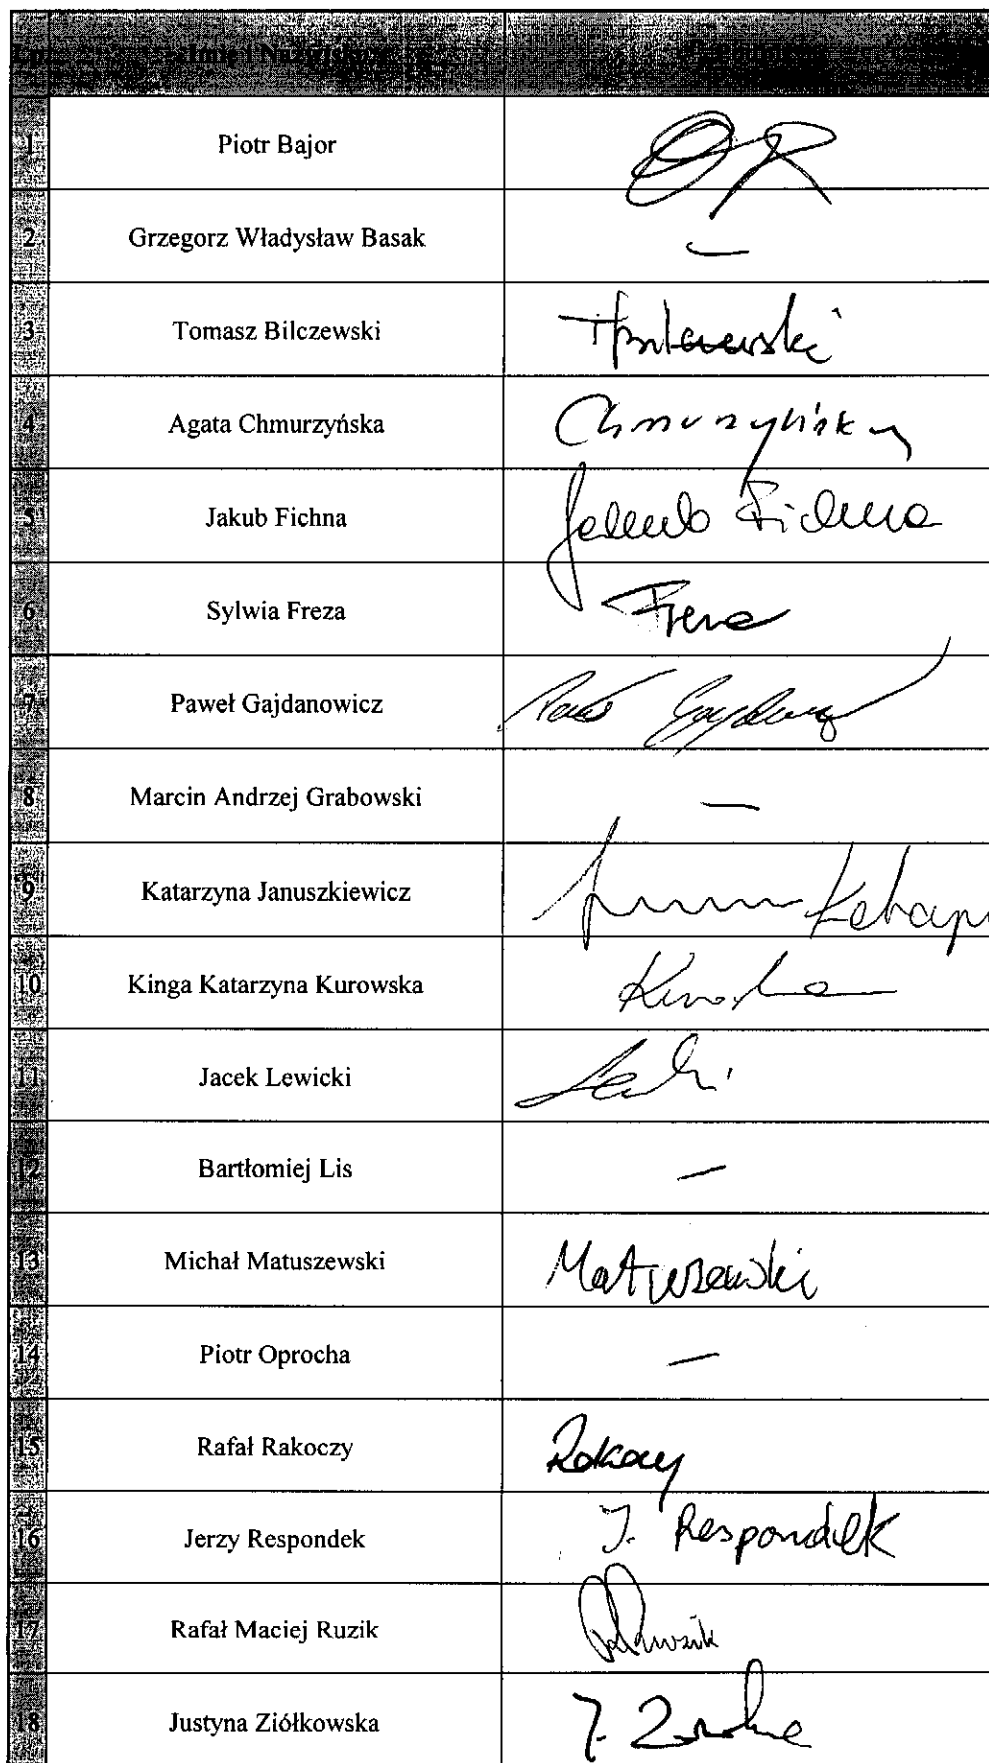 Imię i Nazwisko
1 Piotr Bajor
2 Grzegorz Władysław Basak —
3 Tomasz Bilczewski
4 Agata Chmurzyńska Chmurzyńska
5 Jakub Fichna Jakub Fichna
6 Sylwia Freza Freza
7 Paweł Gajdanowicz
8 Marcin Andrzej Grabowski —
9 Katarzyna Januszkiewicz
10 Kinga Katarzyna Kurowska
11 Jacek Lewicki
12 Bartłomiej Lis —
13 Michał Matuszewski Matuszewski
14 Piotr Oprocha —
15 Rafał Rakoczy Rakoczy
16 Jerzy Respondek J. Respondek
17 Rafał Maciej Ruzik
18 Justyna Ziółkowska